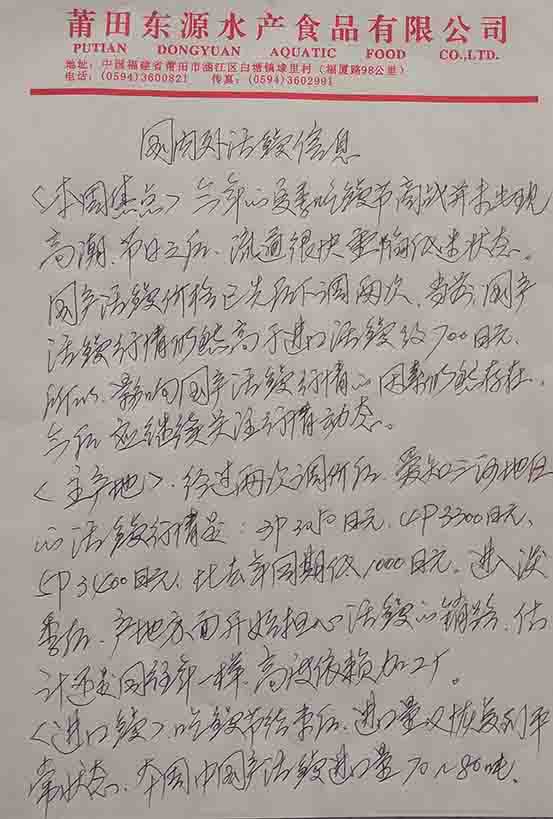 莆田东源水产食品有限公司
PUTIAN DONGYUAN AQUATIC FOOD CO.,LTD.
地址：中国福建省莆田市涵江区白塘镇埭里村（福厦路98公里）
电话：(0594)3600821 传真：(0594)3602991
国内外活鳗信息
〈本周焦点〉今年的夏季吃鳗节商战并未出现
高潮、节日之后、流通很快重临低迷状态。
国产活鳗价格已先后下调两次、当前、国产
活鳗行情仍然高于进口活鳗约700日元、
所以、影响国产活鳗行情的因素仍然存在、
今后还继续关注行情动态。
〈主产地〉、经过两次调价后、爱知三河地区
的活鳗行情是：3P 3050日元、4P3300日元、
5P3400日元、比去年同期低1000日元。进入淡
季后、产地方面开始担心活鳗的销路、估
计还是同往年一样、高度依赖加工厂。
〈进口鳗〉、吃鳗节结束后、进口量又恢复到平
常状态、本周中国产活鳗进口量70~80吨、